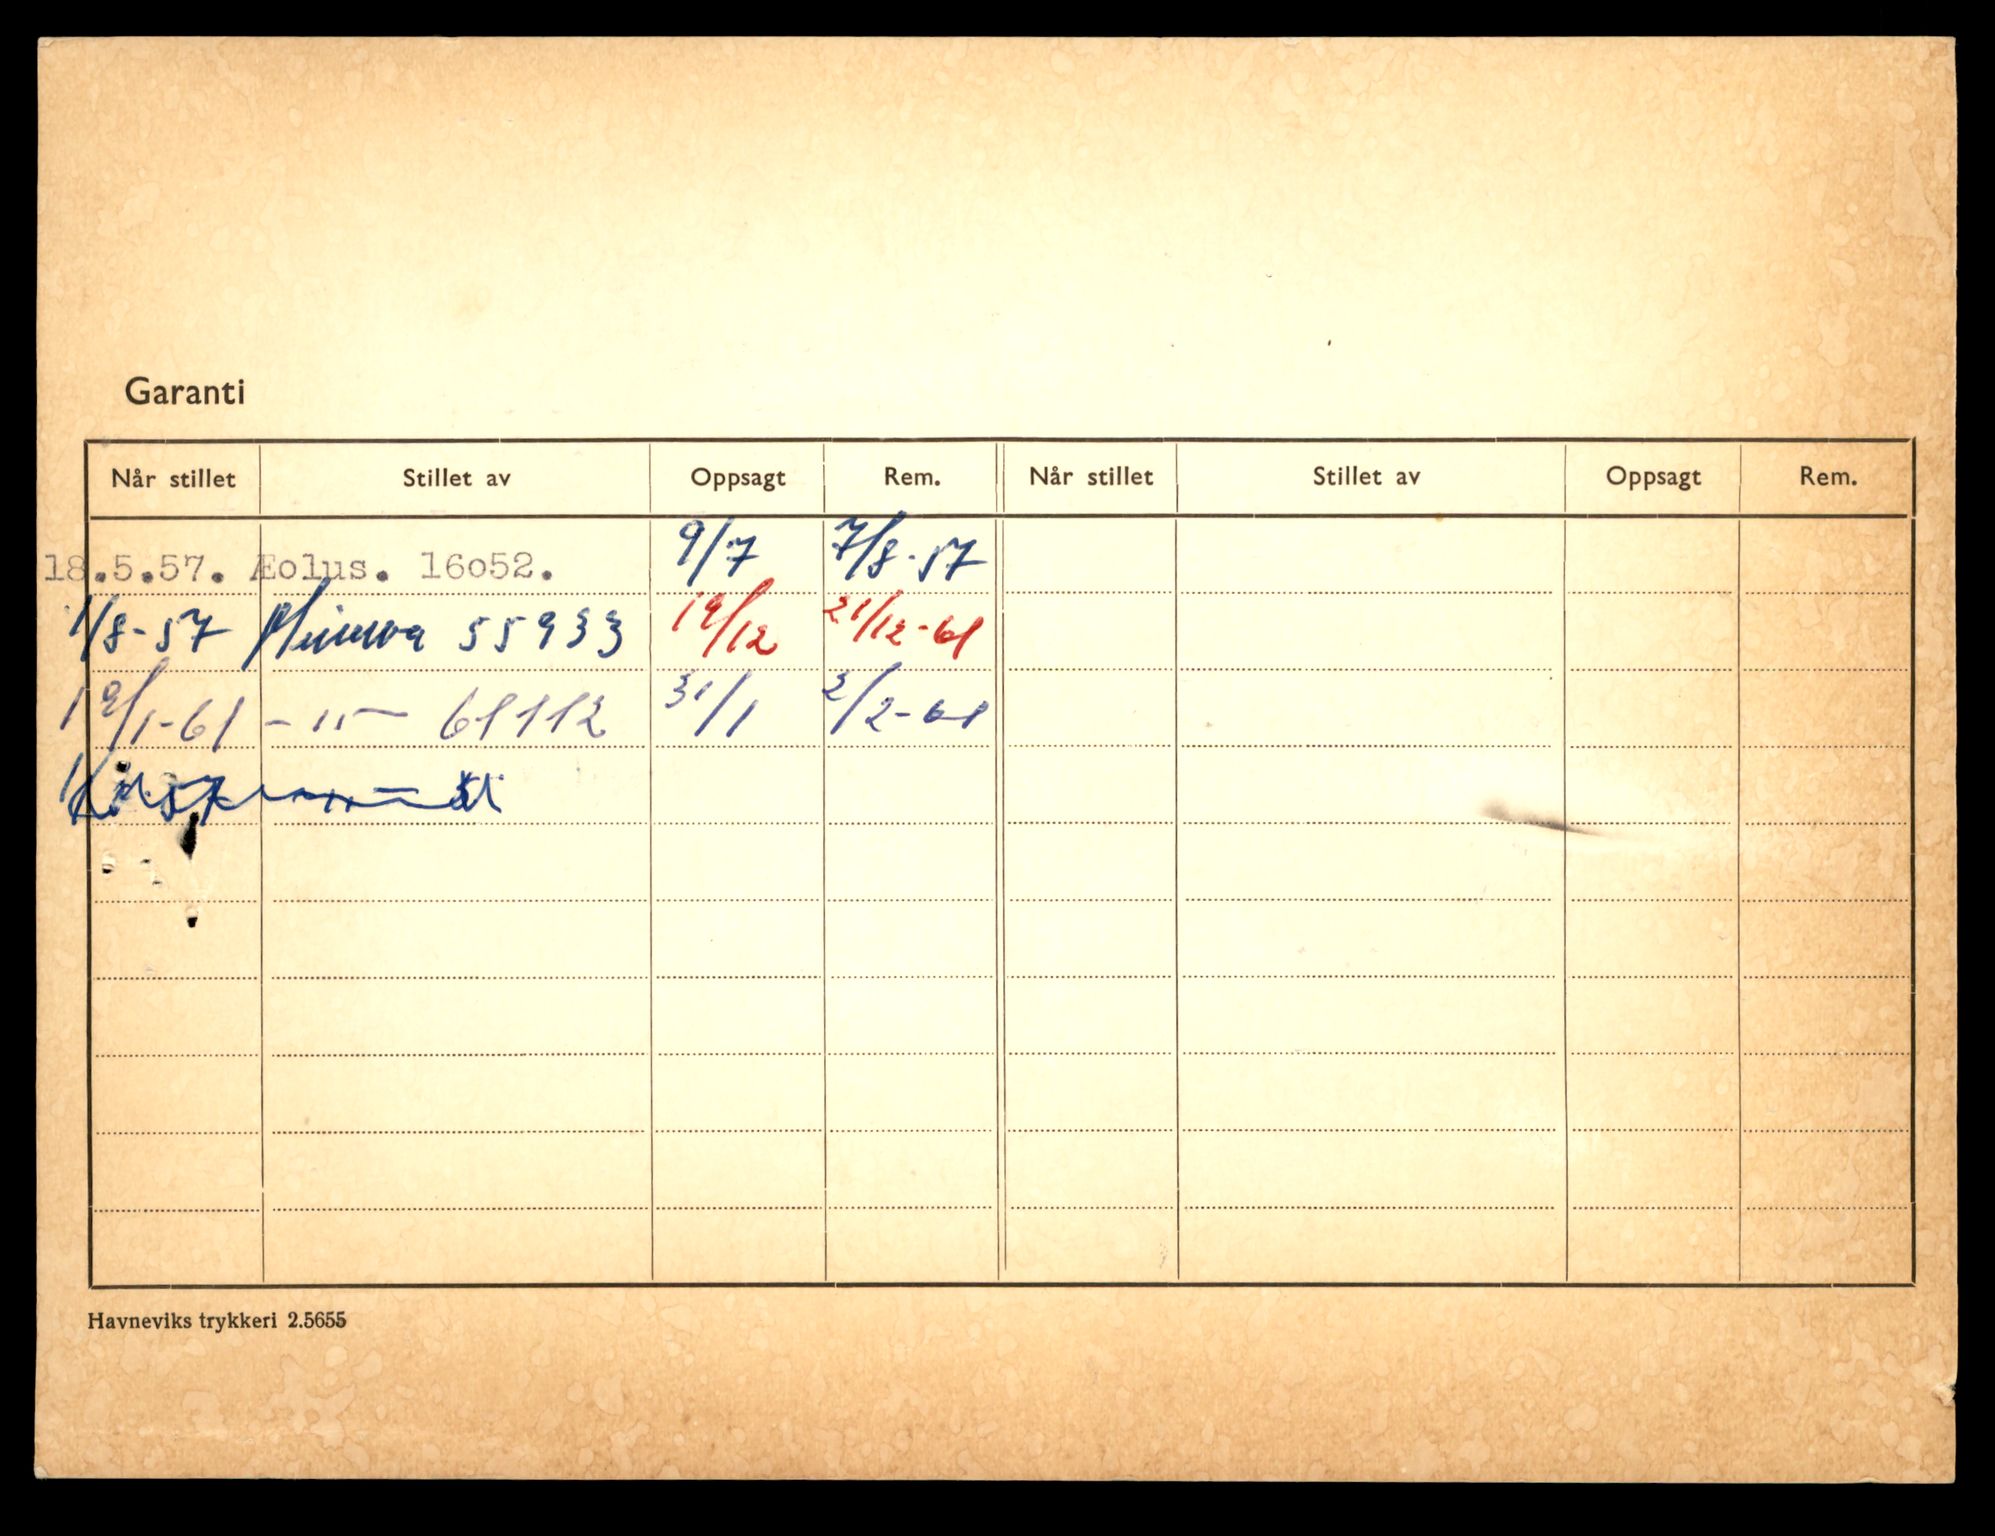 Garanti
Når stillet Stillet av Oppsagt Rem. Når stillet Stillet av Oppsagt Rem.
18.5.57. Æolus. 16o52. 9/7 7/8-57
1/8-57 Minerva 55933 19/12 21/12-61
19/1-61 -"- 61112 31/1 2/2-61
Havneviks trykkeri 2.5655